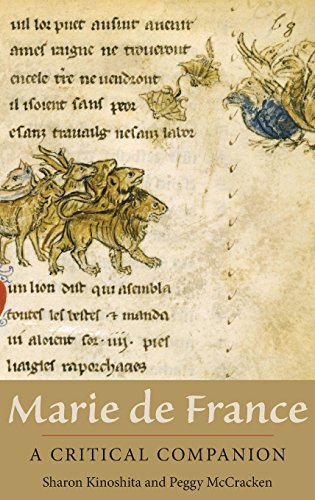 uil lor puet ausint auenir
ames raigne ne troueront
encele tre ne uendront
il isoient sans peor
esanz trauailg nesanz labor
un lion dist qui asembla
toutes les bestes & manda
ui aloient sor .iiii. pies
Marie de France
A CRITICAL COMPANION
Sharon Kinoshita and Peggy McCracken